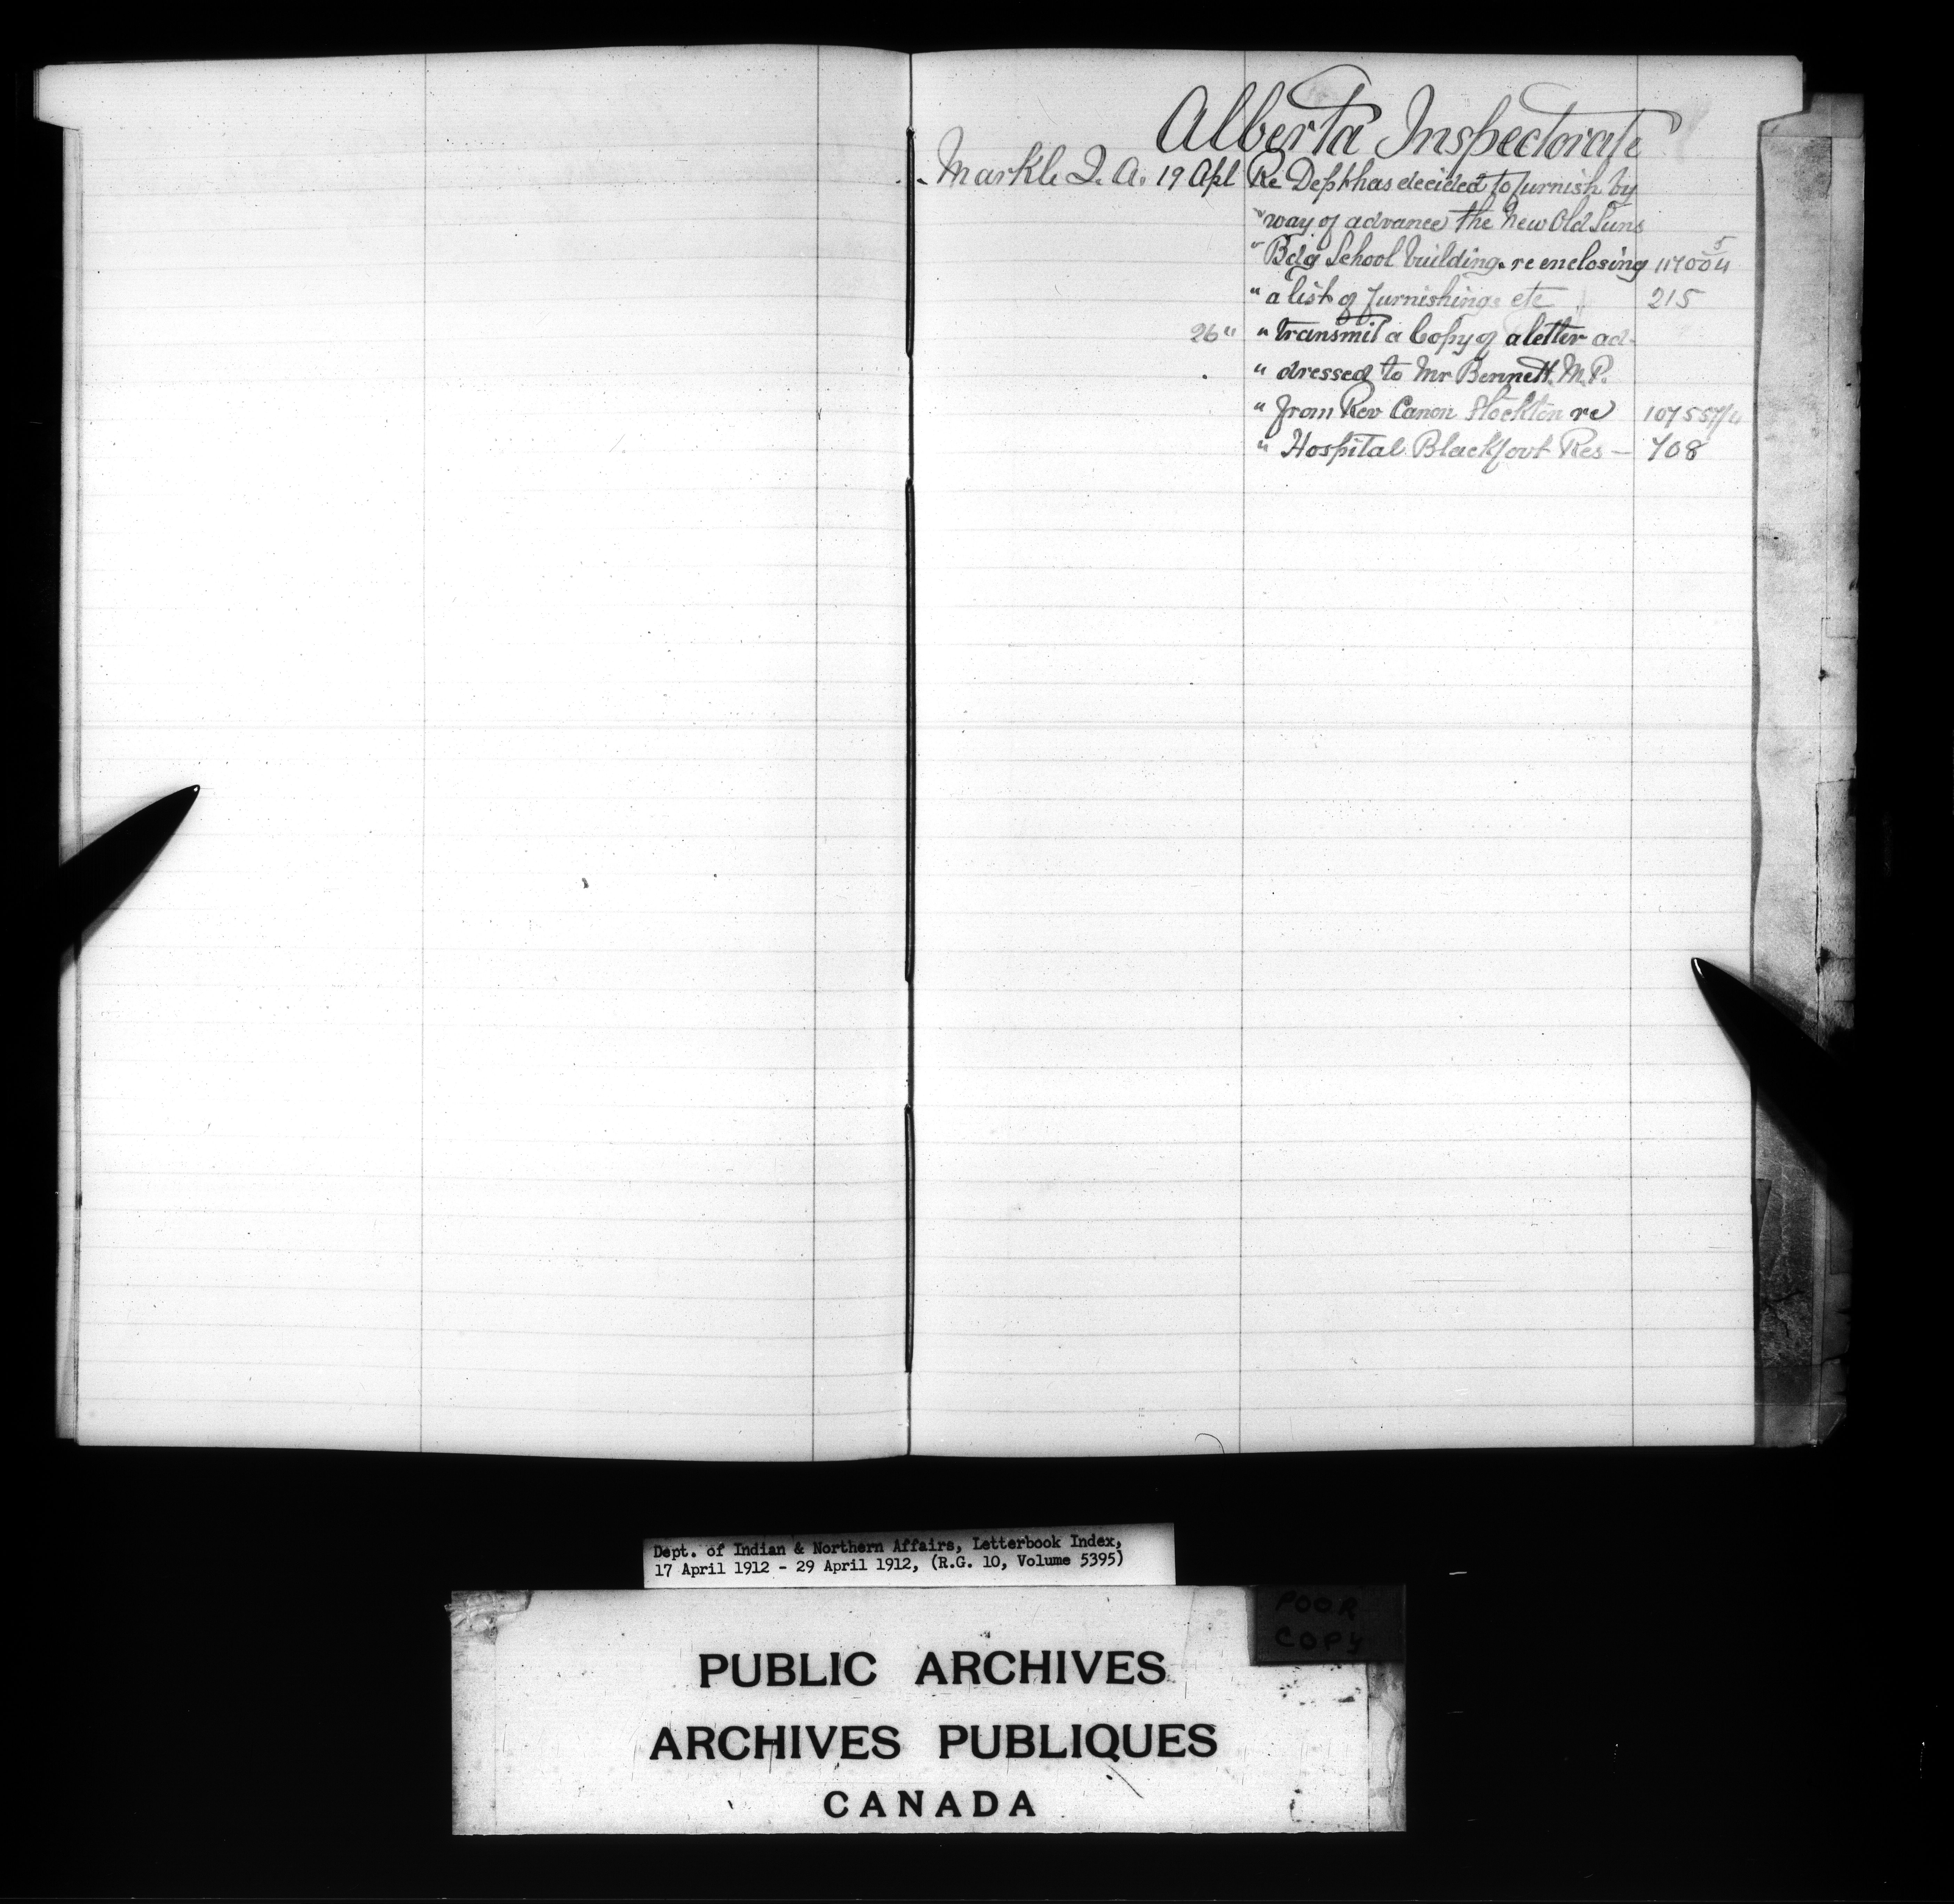 Alberta Inspectorate
Markle J. A. 19 Apl Re Dept has decided to furnish by
" way of advance the New Old Suns
" Bdg School building. re enclosing
" a list of furnishings etc 215
26 " " transmit a Copy of a letter ad-
" dressed to Mr Bennett. M.P.
" from Rev Canon Stockton re
" Hospital Blackfoot Res — 708
Dept. of Indian & Northern Affairs, Letterbook Index,
17 April 1912 - 29 April 1912, (R.G. 10, Volume 5395)
POOR
COPY
PUBLIC ARCHIVES
ARCHIVES PUBLIQUES
CANADA